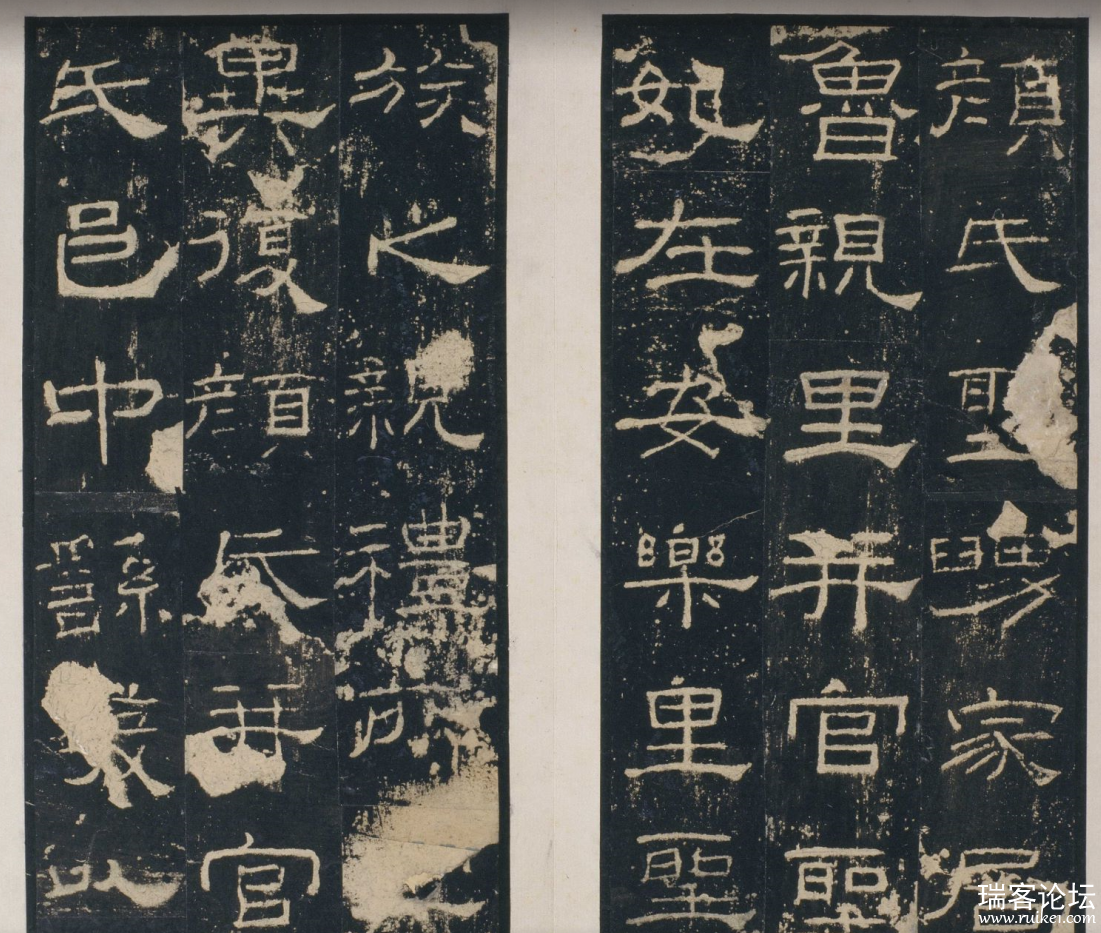 顏氏聖舅家居
魯親里并官聖
妃在安樂里聖
族之親禮所
異復顏氏并官
氏邑中繇發以
瑞客论坛
www.ruikei.com